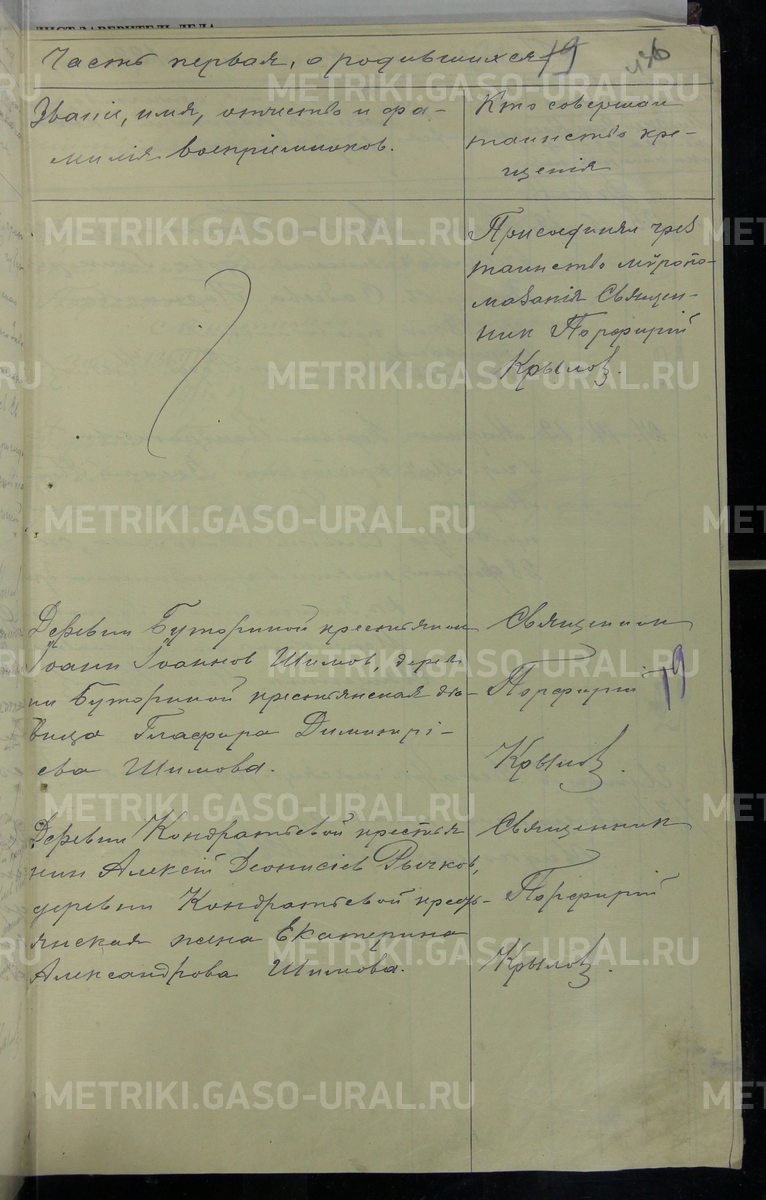 ЛИСТ-ЗАВЕРИТЕЛЬ ДЕЛА
Часть первая, о родившихся
19
Званіе, имя, отчество и фа-
милія воспріемников.
Кто совершал
таинство кре-
щенія
Присоединял чрез
таинство мѵропо-
мазанія Священ-
ник Порфирій
Крылов.
Деревни Буториной крестьянин
Іоанн Іоаннов Шимов, дерев
ни Буториной крестьянская дѣ-
вица Глафира Димитрі-
ева Шимова.
Священник
Порфирій
19
Крылов.
Деревни Кондратьевой крестья
нин Алексій Деонисіев Рычков,
деревни Кондратьевой кресть-
янская жена Екатерина
Александрова Шимова.
Священник
Порфирій
Крылов.
METRIKI.GASO-URAL.RU